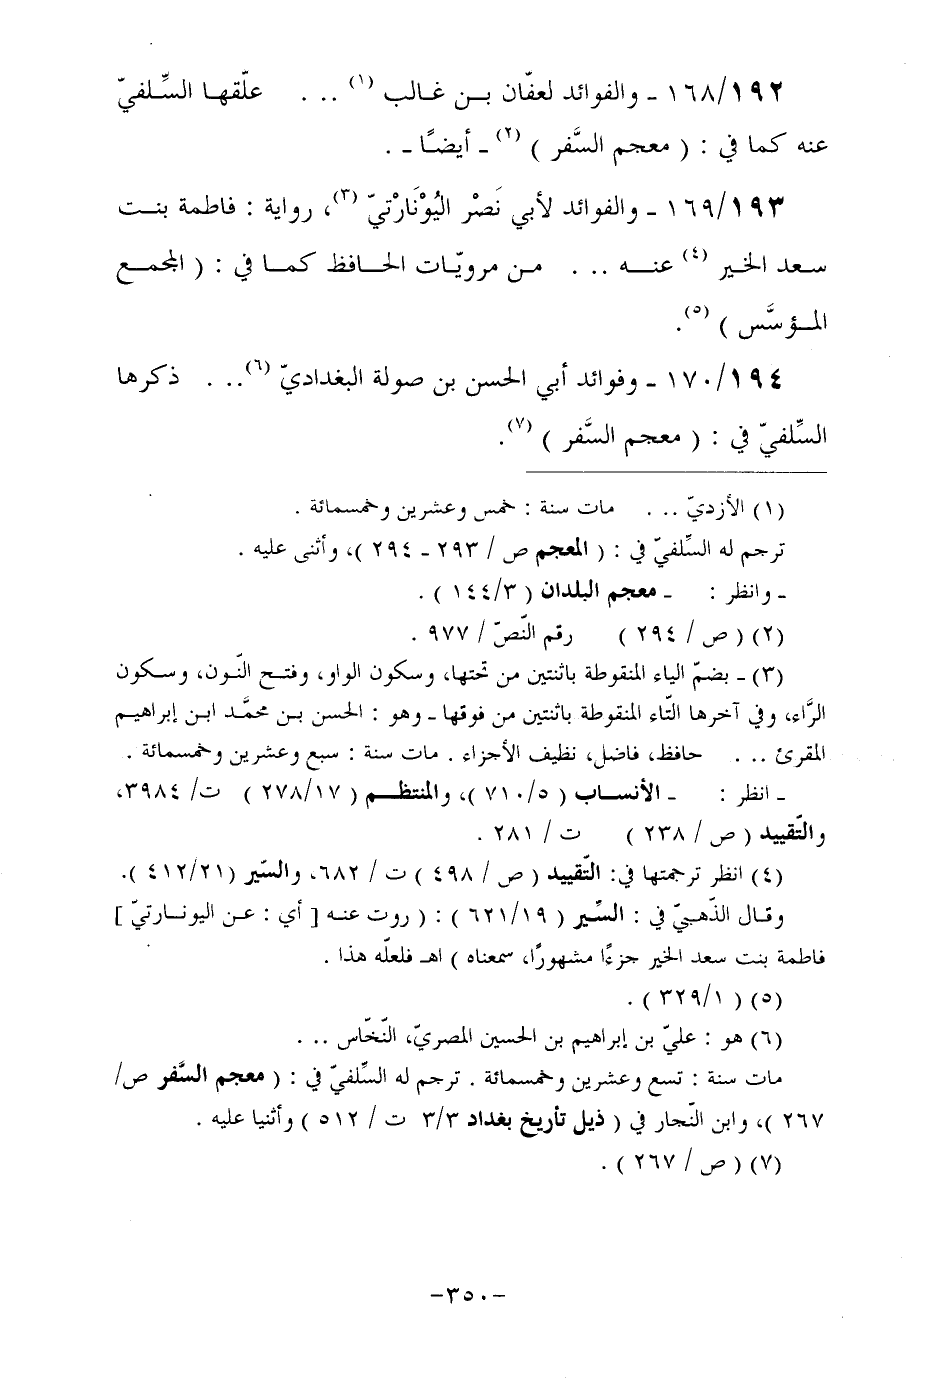 ١٦٨/١٩٢ - والفوائد لعفّان بـن غـالب (١) ... علّقهـا السِّـلفيّ
عنه كما في : ( معجم السَّفر ) (٢) - أيضـًا - .
١٦٩/١٩٣ - والفوائد لأبي نَصْر اليُوْنَارْتيّ (٣)، رواية : فاطمة بنـت
سـعد الخـير (٤) عنـه ... مـن مرويّـات الحـافظ كمـا في : ( المجمـع
المـؤسَّس ) (٥).
١٧٠/١٩٤ - وفوائد أبي الحسن بن صولة البغداديّ (٦)... ذكرها
السِّلفيّ في : ( معجم السَّفر ) (٧).
(١) الأزديّ ... مات سنة : خمس وعشرين وخمسمائة .
ترجم له السِّلفيّ في : ( المعجم ص / ٢٩٣ - ٢٩٤ )، وأثنى عليه .
- وانظر : - معجم البلدان ( ١٤٤/٣ ) .
(٢) ( ص / ٢٩٤ ) رقم النّصّ / ٩٧٧ .
(٣) - بضمّ الياء المنقوطة باثنتين من تحتها، وسكون الواو، وفتـح النّـون، وسـكون
الرَّاء، وفي آخرها التّاء المنقوطة باثنتين من فوقها - وهو : الحسن بـن محمَّـد ابـن إبراهيـم
المقرئ ... حافظ، فاضل، نظيف الأجزاء . مات سنة : سبع وعشرين وخمسمائة .
- انظر : - الأنسـاب ( ٧١٠/٥ )، والمنتظـم ( ٢٧٨/١٧ ) ت/ ٣٩٨٤،
والتّقييد ( ص / ٢٣٨ ) ت / ٢٨١ .
(٤) انظر ترجمتها في: التّقييد ( ص / ٤٩٨ ) ت / ٦٨٢، والسّير (٤١٢/٢١ ).
وقـال الذّهـبيّ في : السِّير ( ٦٢١/١٩ ) : ( روت عنـه [ أي : عـن اليونـارتيّ ]
فاطمة بنت سعد الخير جزءًا مشهورًا، سمعناه ) اهـ فلعلّه هذا .
(٥) ( ٣٢٩/١ ) .
(٦) هو : عليّ بن إبراهيم بن الحسين المصريّ، النّخّاس ...
مات سنة : تسع وعشرين وخمسمائة . ترجم له السِّلفيّ في : ( معجم السَّفر ص/
٢٦٧ )، وابن النّجار في ( ذيل تأريخ بغداد ٣/٣ ت / ٥١٢ ) وأثنيا عليه .
(٧) ( ص / ٢٦٧ ) .
-٣٥٠-